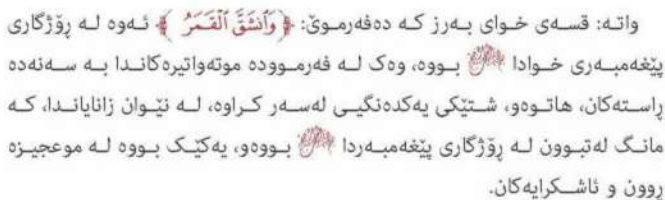 واتە: قسەی خوای بەرز کە دەفەرموێ: ﴿وَٱنشَقَّ ٱلْقَمَرُ﴾ ئەوە لە ڕۆژگاری
پێغەمبەری خوادا ﷺ بووە، وەک لە فەرموودە موتەواتیرەکاندا بە سەنەدە
ڕاستەکان، هاتوەو، شتێکی یەکدەنگیی لەسەر کراوە، لە نێوان زانایاندا، کە
مانگ لەتبوون لە ڕۆژگاری پێغەمبەردا ﷺ بووەو، یەکێک بووە لە موعجیزە
ڕوون و ئاشکرایەکان.